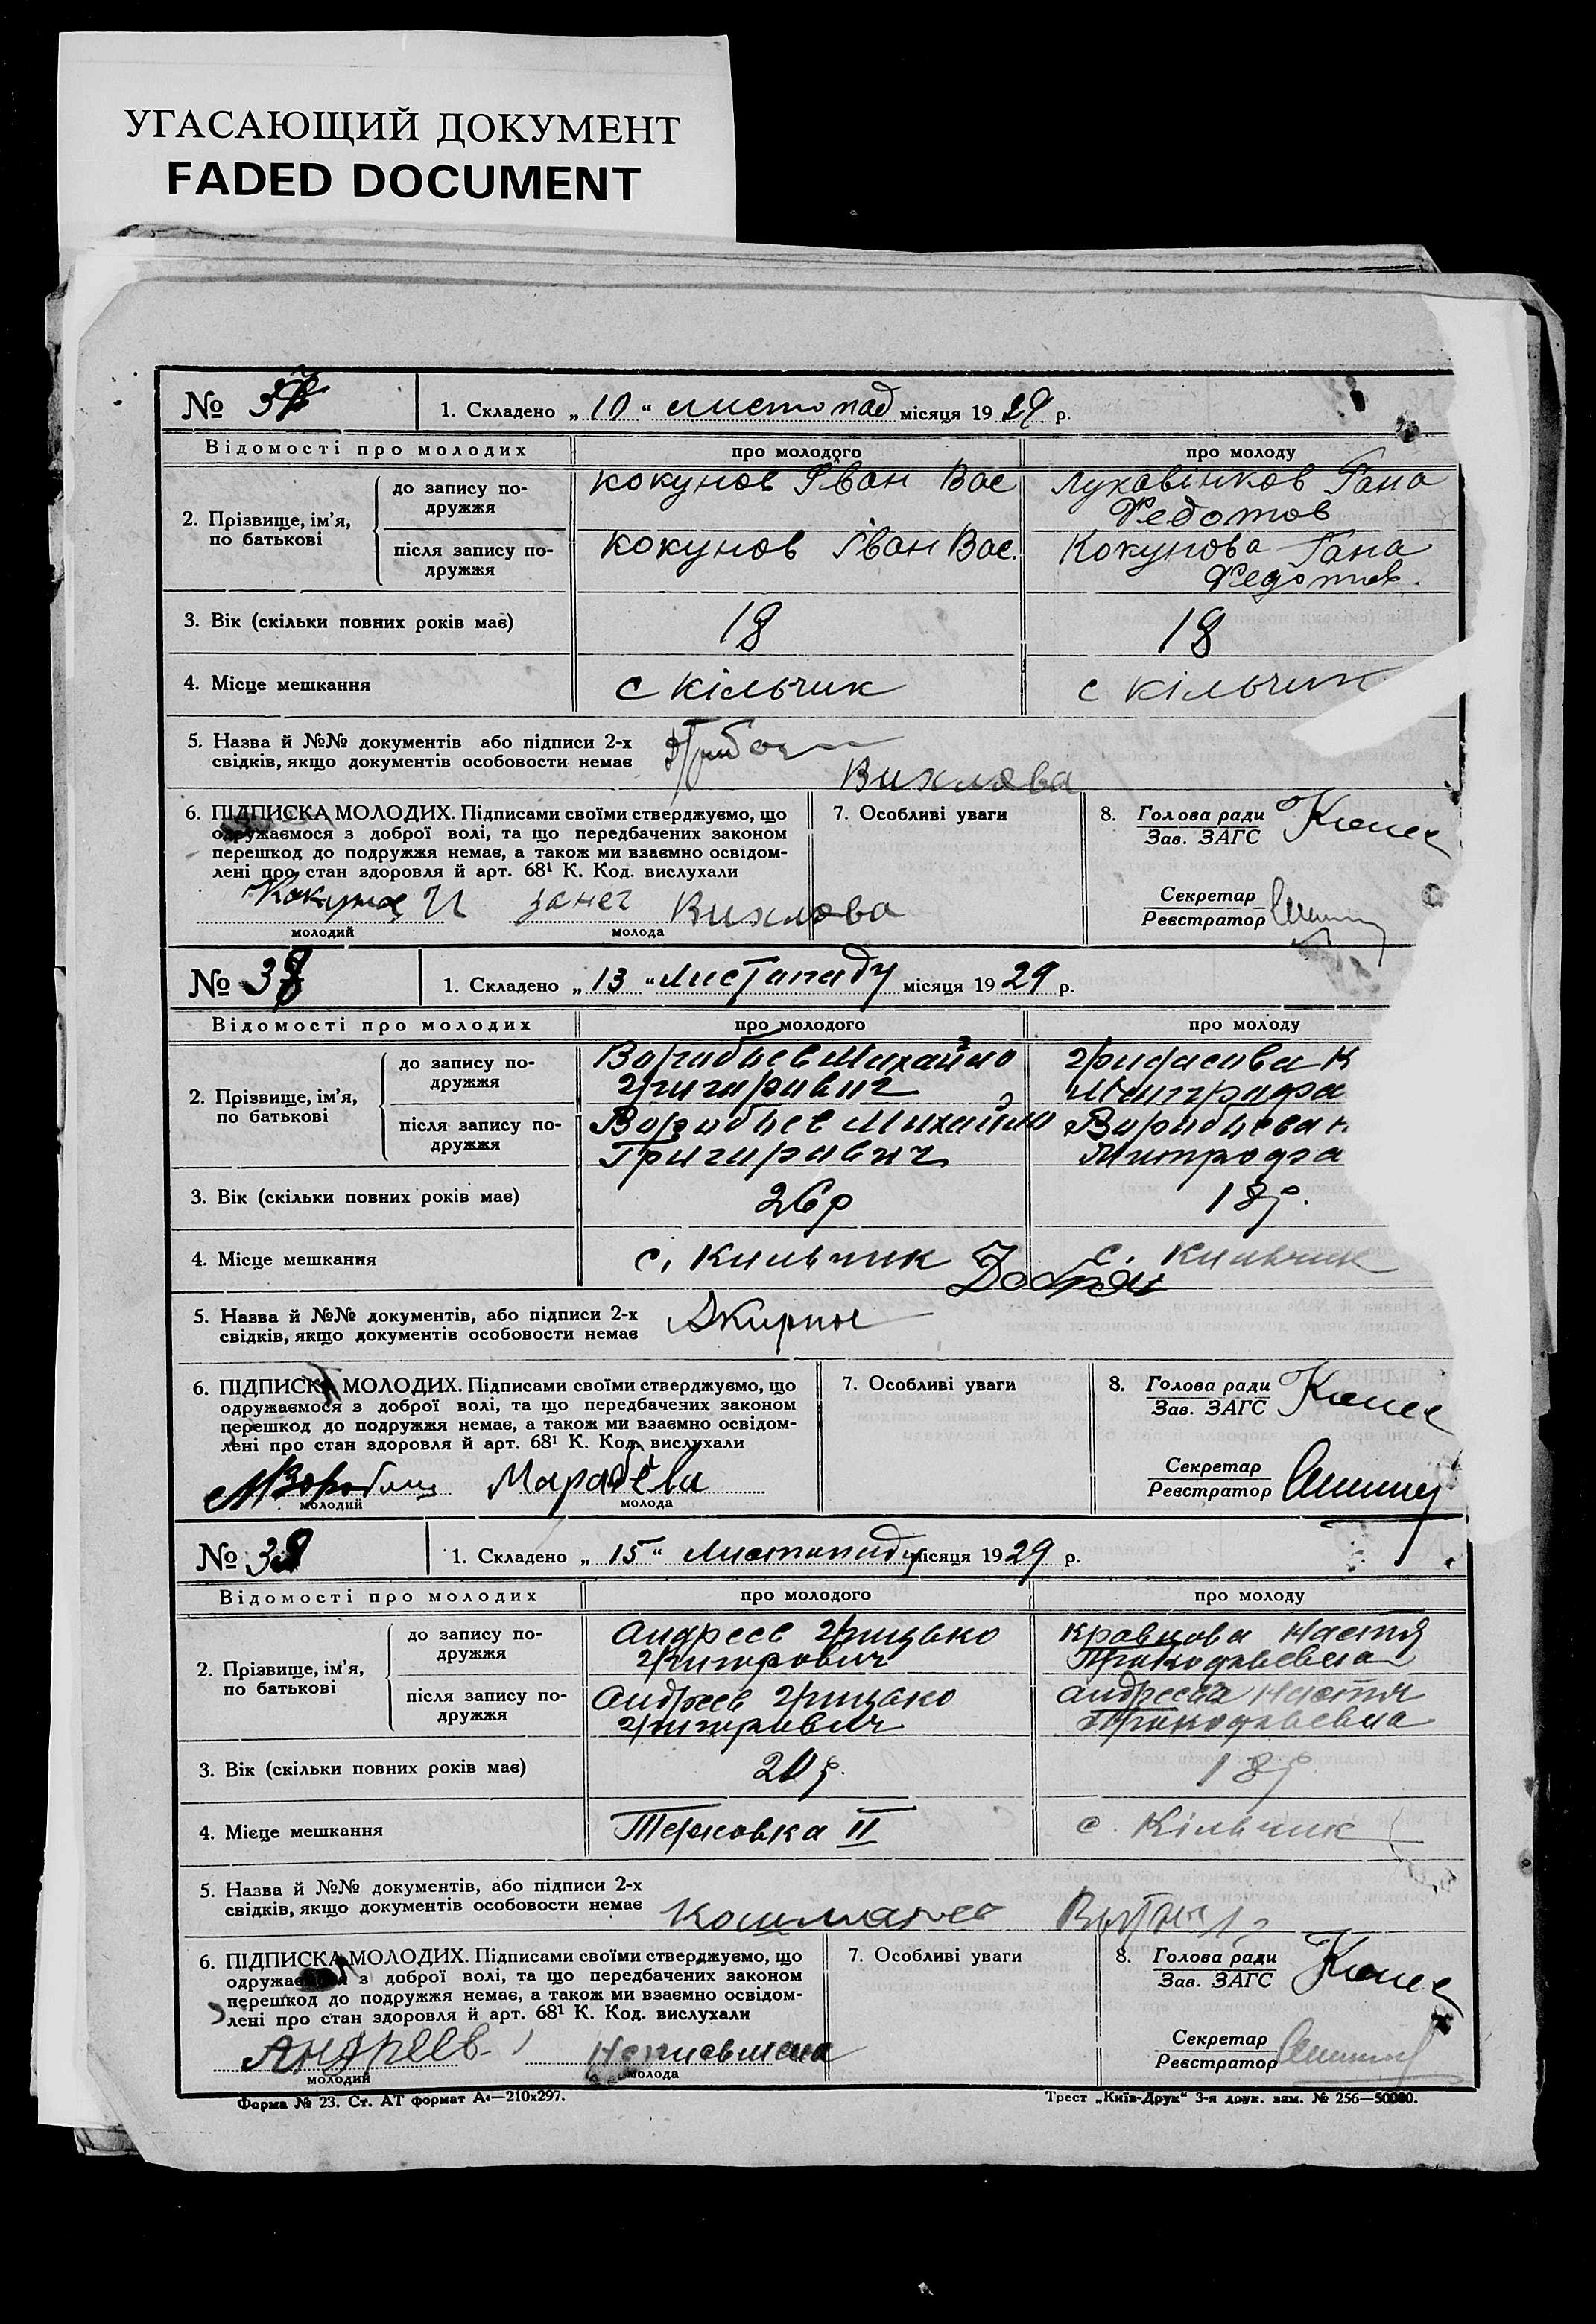 УГАСАЮЩИЙ ДОКУМЕНТ
FADED DOCUMENT
№ 37 1. Складено „ 10 “ листопад місяця 19 29 р.
Відомості про молодих про молодого про молоду
2. Прізвище, ім’я, по батькові
до запису подружжя Кокунов Іван Вас Лукавінков Гана
Федотов
після запису подружжя Кокунов Іван Вас. Кокунова Гана
Федотов.
3. Вік (скільки повних років має) 18 18
4. Місце мешкання с Кільчик с Кільчик
5. Назва й №№ документів або підписи 2-х
свідків, якщо документів особовости немає
Вихлова
6. ПІДПИСКА МОЛОДИХ. Підписами своїми стверджуємо, що 7. Особливі уваги 8. Голова ради
одружаємося з доброї волі, та що передбачених законом Зав. ЗАГС
перешкод до подружжя немає, а також ми взаємно освідом-
лені про стан здоровля й арт. 68¹ К. Код. вислухали Секретар
Кокунов И Вихлова Реєстратор
молодий молода
№ 38 1. Складено „ 13 “ Листападу місяця 19 29 р.
Відомості про молодих про молодого про молоду
2. Прізвище, ім’я, по батькові
до запису подружжя Воробьев Михайло К
Григорович
після запису подружжя Воробьев Михайло Воробьева
Григорович Митрофа
3. Вік (скільки повних років має) 26 р 18 р.
4. Місце мешкання с. Кильчик с. Кильчик
5. Назва й №№ документів, або підписи 2-х
свідків, якщо документів особовости немає
6. ПІДПИСКА МОЛОДИХ. Підписами своїми стверджуємо, що 7. Особливі уваги 8. Голова ради
одружаємося з доброї волі, та що передбачених законом Зав. ЗАГС
перешкод до подружжя немає, а також ми взаємно освідом-
лені про стан здоровля й арт. 68¹ К. Код. вислухали Секретар
Реєстратор
молодий молода
№ 39 1. Складено „ 15 “ Листопаду місяця 19 29 р.
Відомості про молодих про молодого про молоду
2. Прізвище, ім’я, по батькові
до запису подружжя Андреев Грицько Кравцова Настя
після запису подружжя Андреев Грицько Андреева Настя
3. Вік (скільки повних років має) 18 р
4. Місце мешкання Терновка II с. Кільчик
5. Назва й №№ документів, або підписи 2-х
свідків, якщо документів особовости немає
6. ПІДПИСКА МОЛОДИХ. Підписами своїми стверджуємо, що 7. Особливі уваги 8. Голова ради
одружаємося з доброї волі, та що передбачених законом Зав. ЗАГС
перешкод до подружжя немає, а також ми взаємно освідом-
лені про стан здоровля й арт. 68¹ К. Код. вислухали Секретар
Андреев Реєстратор
молодий молода
Форма № 23. Ст. АТ формат А₄—210х297. Трест „Київ-Друк“ 3-я друк. зам. № 256—50000.